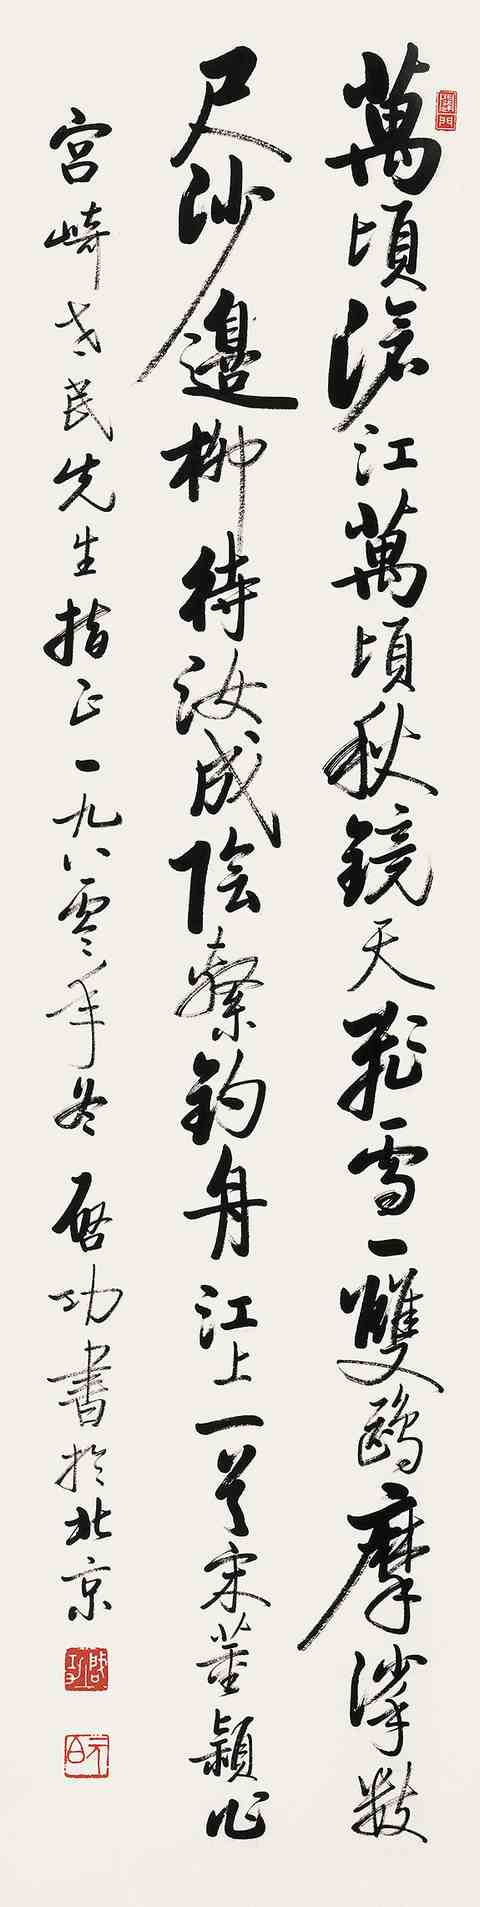 萬頃滄江萬頃秋鏡天飛雪一雙鷗摩挲數
尺沙邊柳待汝成陰繫釣舟江上一首宋董穎作
宮崎世民先生指正一九八零年冬啟功書於北京
啟功
元白